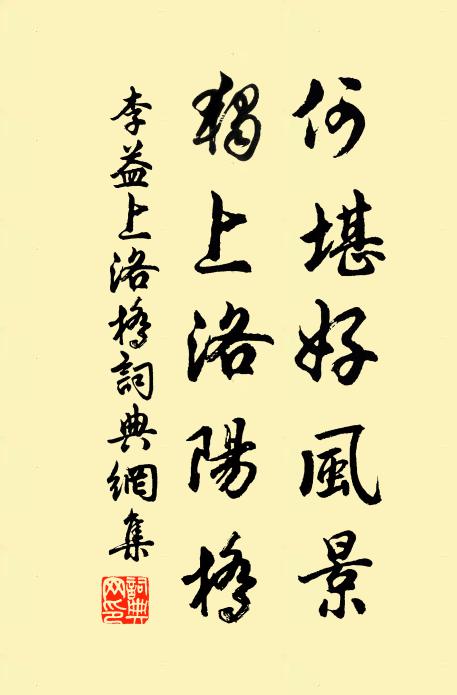 何堪好風景
獨上洛陽橋
李益上洛橋詞典網集
詞典網印